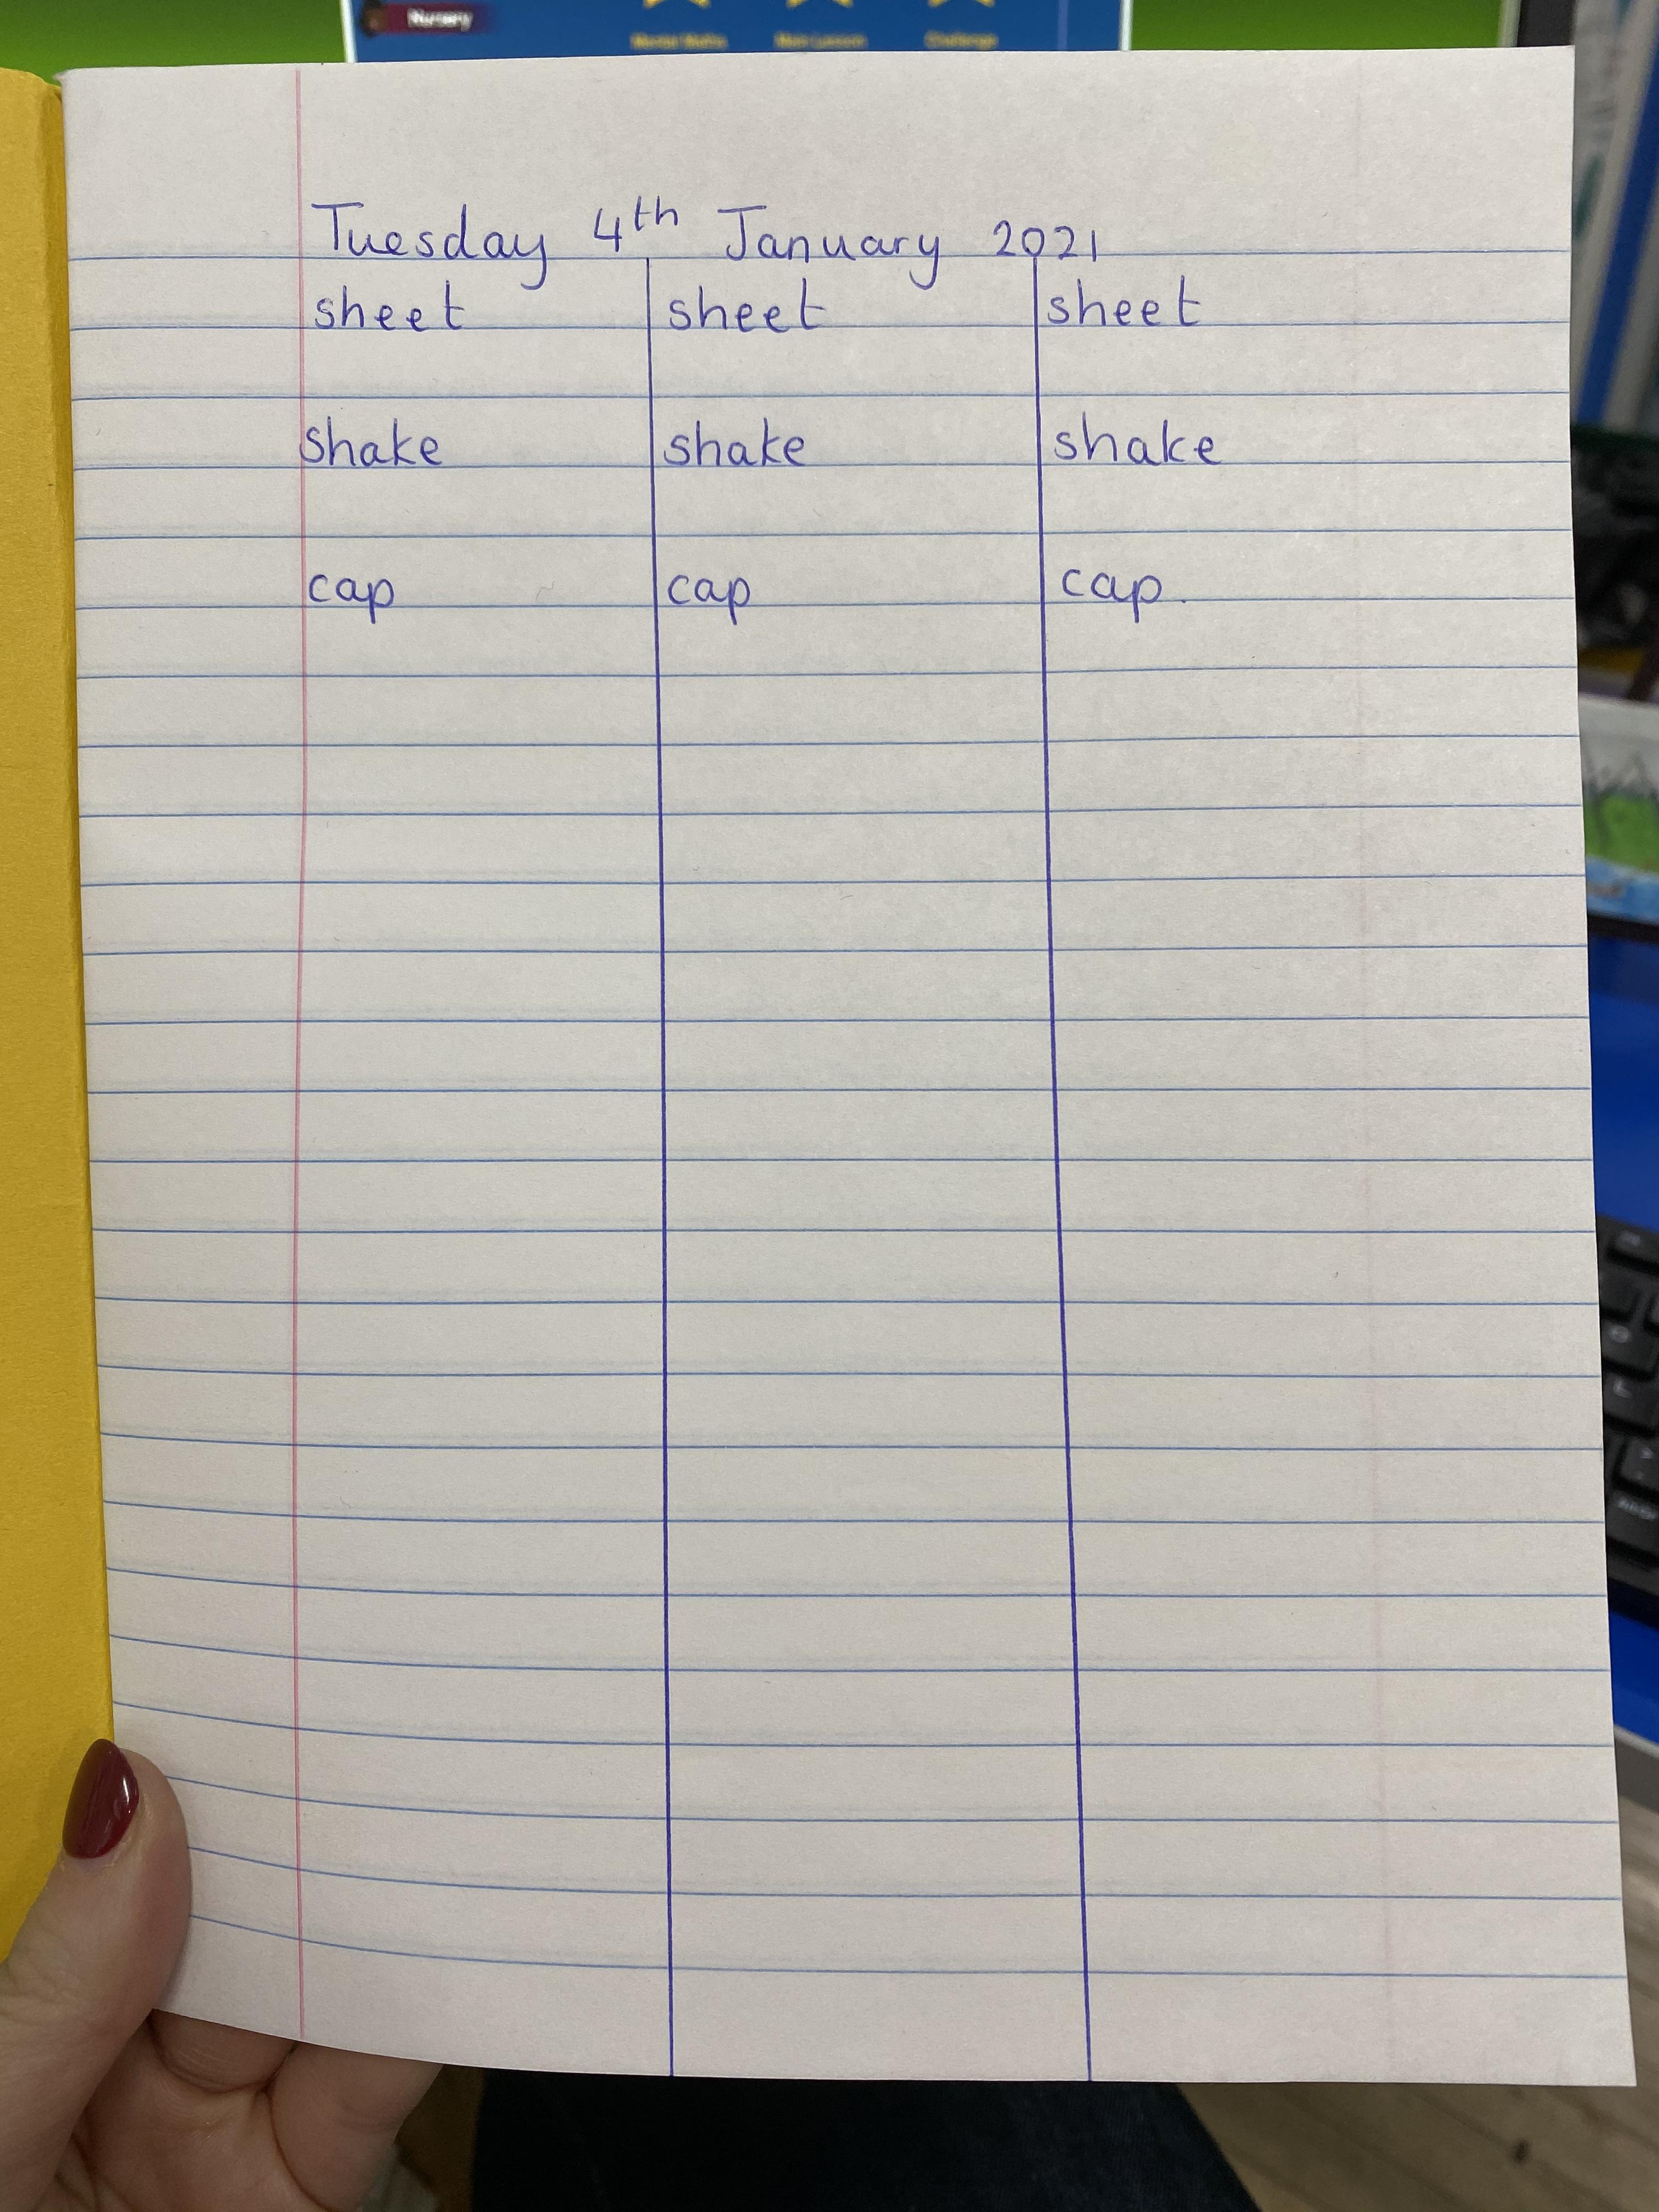 Nursery
Mental Maths Main Lesson Challenge
Tuesday 4th January 2021
sheet sheet sheet
shake shake shake
cap cap cap.